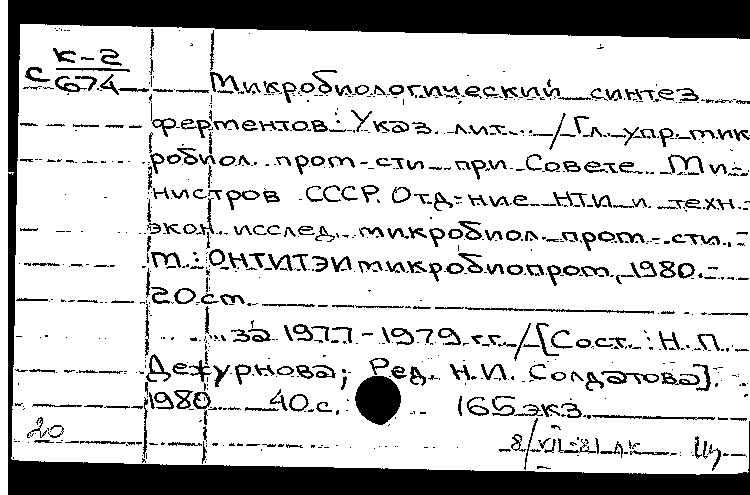 К-2
С 674
Микробиологический синтез
ферментов: Указ. лит... / Гл. упр. мик-
робиол. пром-сти при Совете Ми-
нистров СССР. Отд-ние НТИ и техн.-
экон. исслед. микробиол. пром-сти. -
М.: ОНТИТЭИмикробиопром, 1980. -
20 см.
... за 1977-1979 гг. / [Сост.: Н. П.
Дежурнова; Ред. Н.И. Солдатова]. -
1980 40 с. 165 экз.
20
8/VII-81 ДК